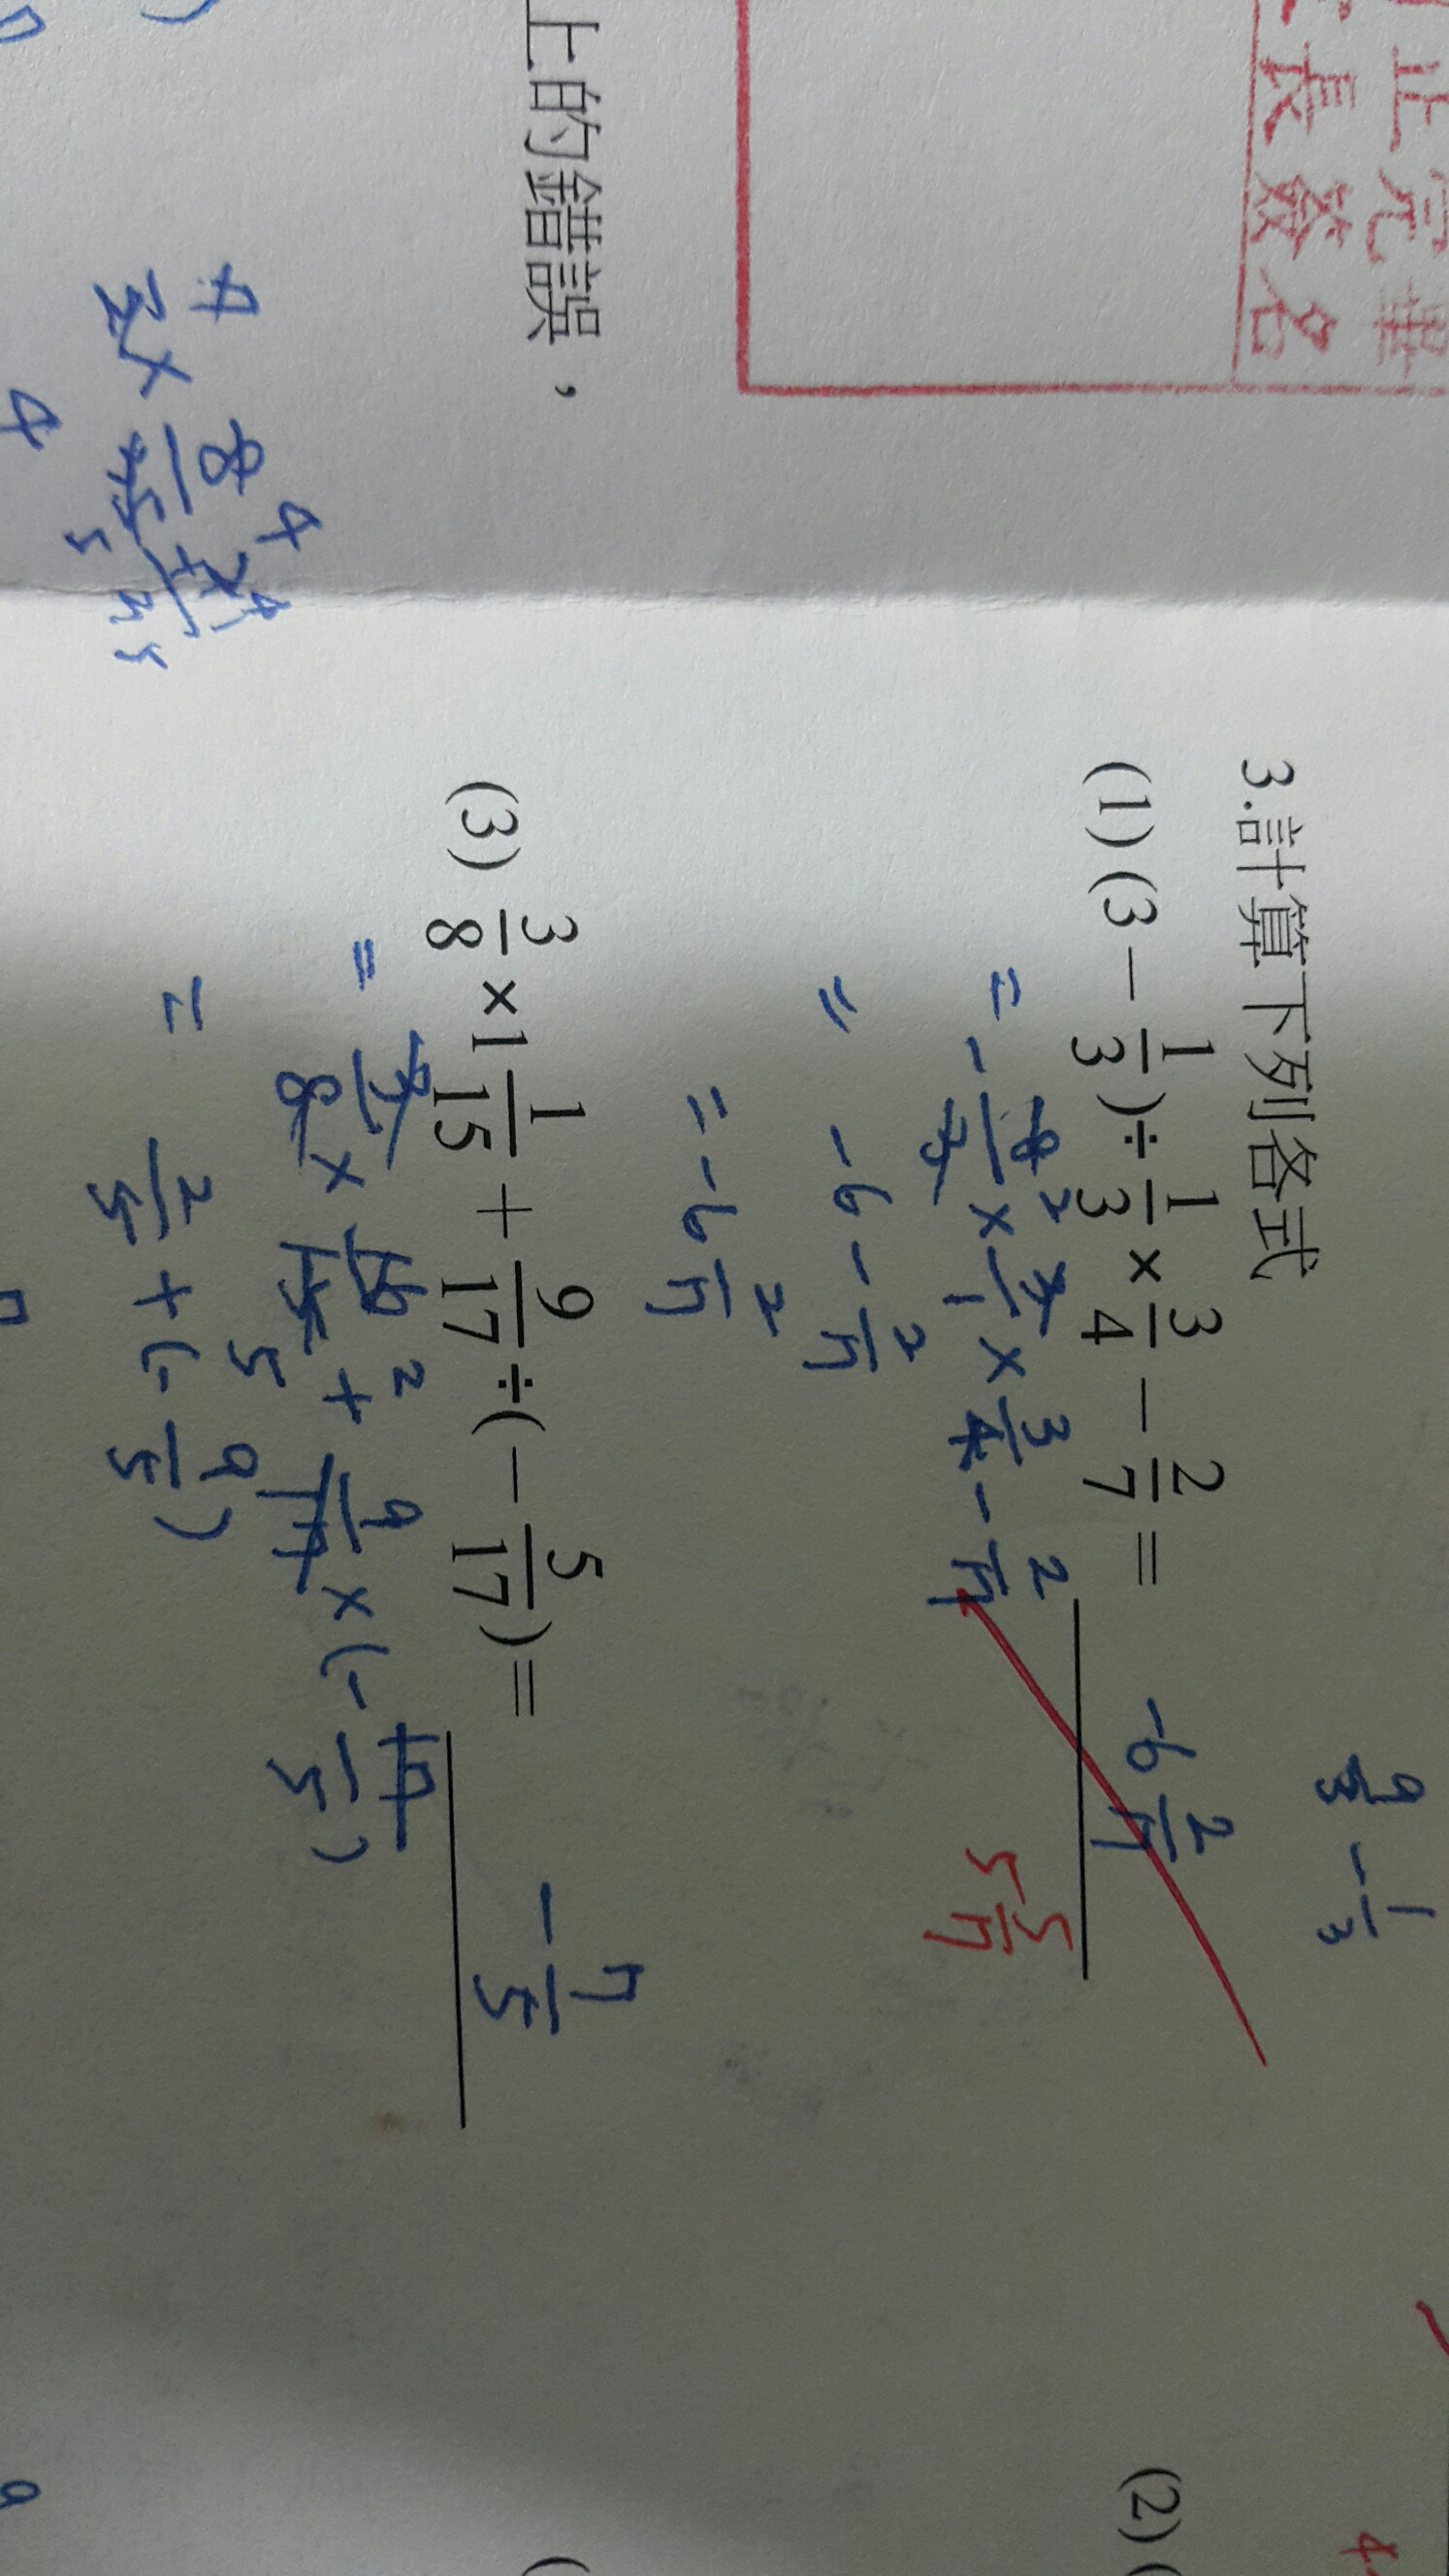 正完畢
長簽名
上的錯誤，
3.計算下列各式
9/3 - 1/3
(1) (3 - 1/3) ÷ 1/3 × 3/4 - 2/7 = -6 2/7
= - 8/3 × 3/1 × 3/4 - 2/7
5 5/7
= -6 - 2/7
= -6 2/7
(2) (
(3) 3/8 × 1 1/15 + 9/17 ÷ (- 5/17) = - 7/5
= 3/8 × 16/15 + 9/17 × (- 17/5)
2
5
= 2/5 + (- 9/5)